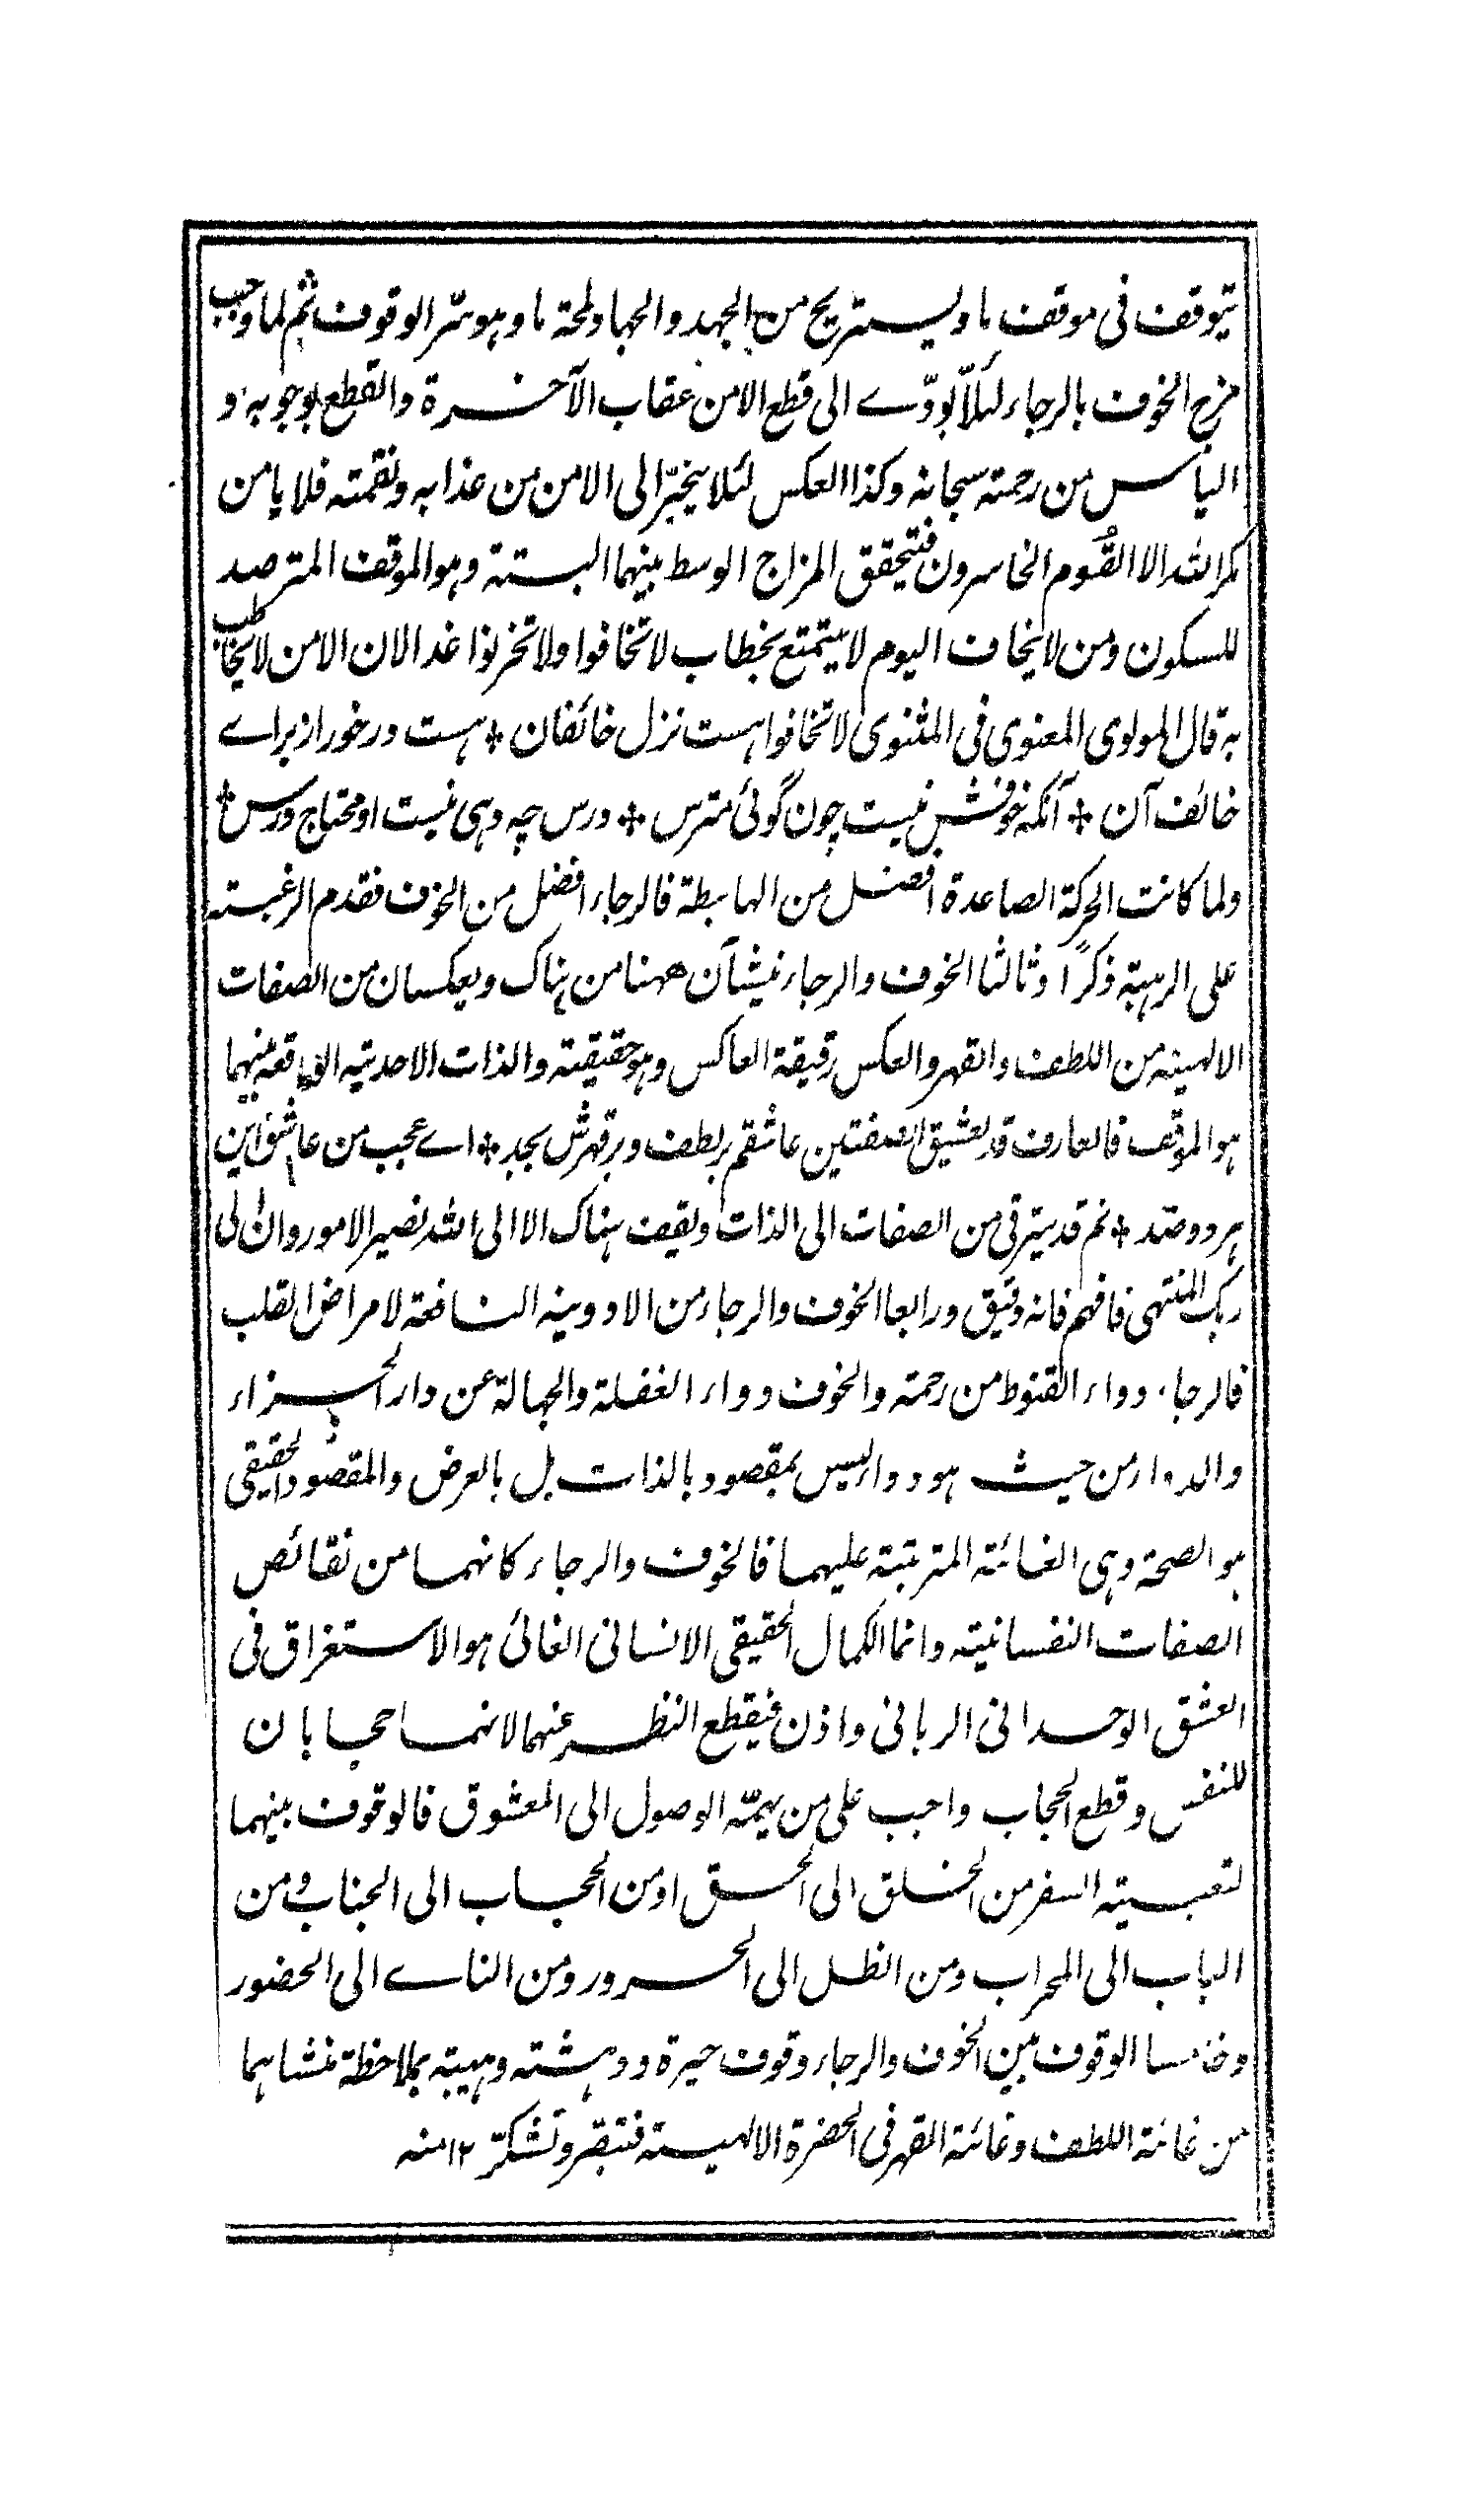 يتوقف فى موقف ما وليستريح من الجهد والجهاد لمحة ما وهو سر الوقوف ثم لما وجب
مزج الخوف بالرجاء لئلا يودّے الى قطع الامن عقاب الآخرة والقطع بوجوبه و
الياس من رحمته سبحانه وكذا العكس لئلا ينجرّ الى الامن من عذابه ونقمته فلا يامن
مكر الله الا القوم الخاسرون فيتحقق المزاج الوسط بينهما البتة وهو الموقف المترصد
للسكون ومن لا يخاف اليوم لا يتمتع بخطاب لا تخافوا ولا تحزنوا غدا لان الامن لا يخاطب
به قال المولوى المعنوى فى المثنوى لا تخافوا هست نزل خائفان + هست درخور از براے
خائف آن + آنكه خوفش نيست چون گوئى مترس + درس چه دهى نيست او محتاج درس +
ولما كانت الحركة الصاعدة افضل من الهابطة فالرجاء افضل من الخوف فقدم الرغبة
على الرهبة ذكرًا وثالثا الخوف والرجاء ينشآن ههنا من هناك ويعكسان من الصفات
الالهية من اللطف والقهر والعكس رقيقة العاكس وهو حقيقته والذات الاحدية الواقعة بينهما
هو الموقف فالعارف قد يعشق الصفتين عاشقم بر لطف و بر قهرش بجد + اے عجب من عاشق اين
هر دو ضد + ثم قد يترقى من الصفات الى الذات ويقف هناك الا الى الله تصير الامور وان الى
ربك المنتهى فافهم فانه دقيق ورابعا الخوف والرجاء من الادوية النافعة لامراض القلب
فالرجاء دواء القنوط من رحمته والخوف دواء الغفلة والجهالة عن دار الجزاء
والدواء من حيث هو دواء ليس بمقصود بالذات بل بالعرض والمقصود الحقيقى
هو الصحة وهى الغائة المترتبة عليهما فالخوف والرجاء كانهما من نقائص
الصفات النفسانية وانما الكمال الحقيقى الانسانى الغائى هو الاستغراق فى
العشق الوحدانى الربانى واذن فيقطع النظر عنهما لانهما حجابان
للنفس وقطع الحجاب واجب على من يهمّه الوصول الى المعشوق فالوقوف بينهما
لتعبية السفر من الخلق الى الحق او من الحجاب الى الجناب ومن
الباب الى المحراب ومن الظل الى الحرور ومن الناے الى الحضور
وخامسا الوقوف بين الخوف والرجاء وقوف حيرة ودهشة وهيبة بملاحظة منشاهما
من غائة اللطف وغائة القهر فى الحضرة الالهية فتبصّر وتشكّر ١٢ منه